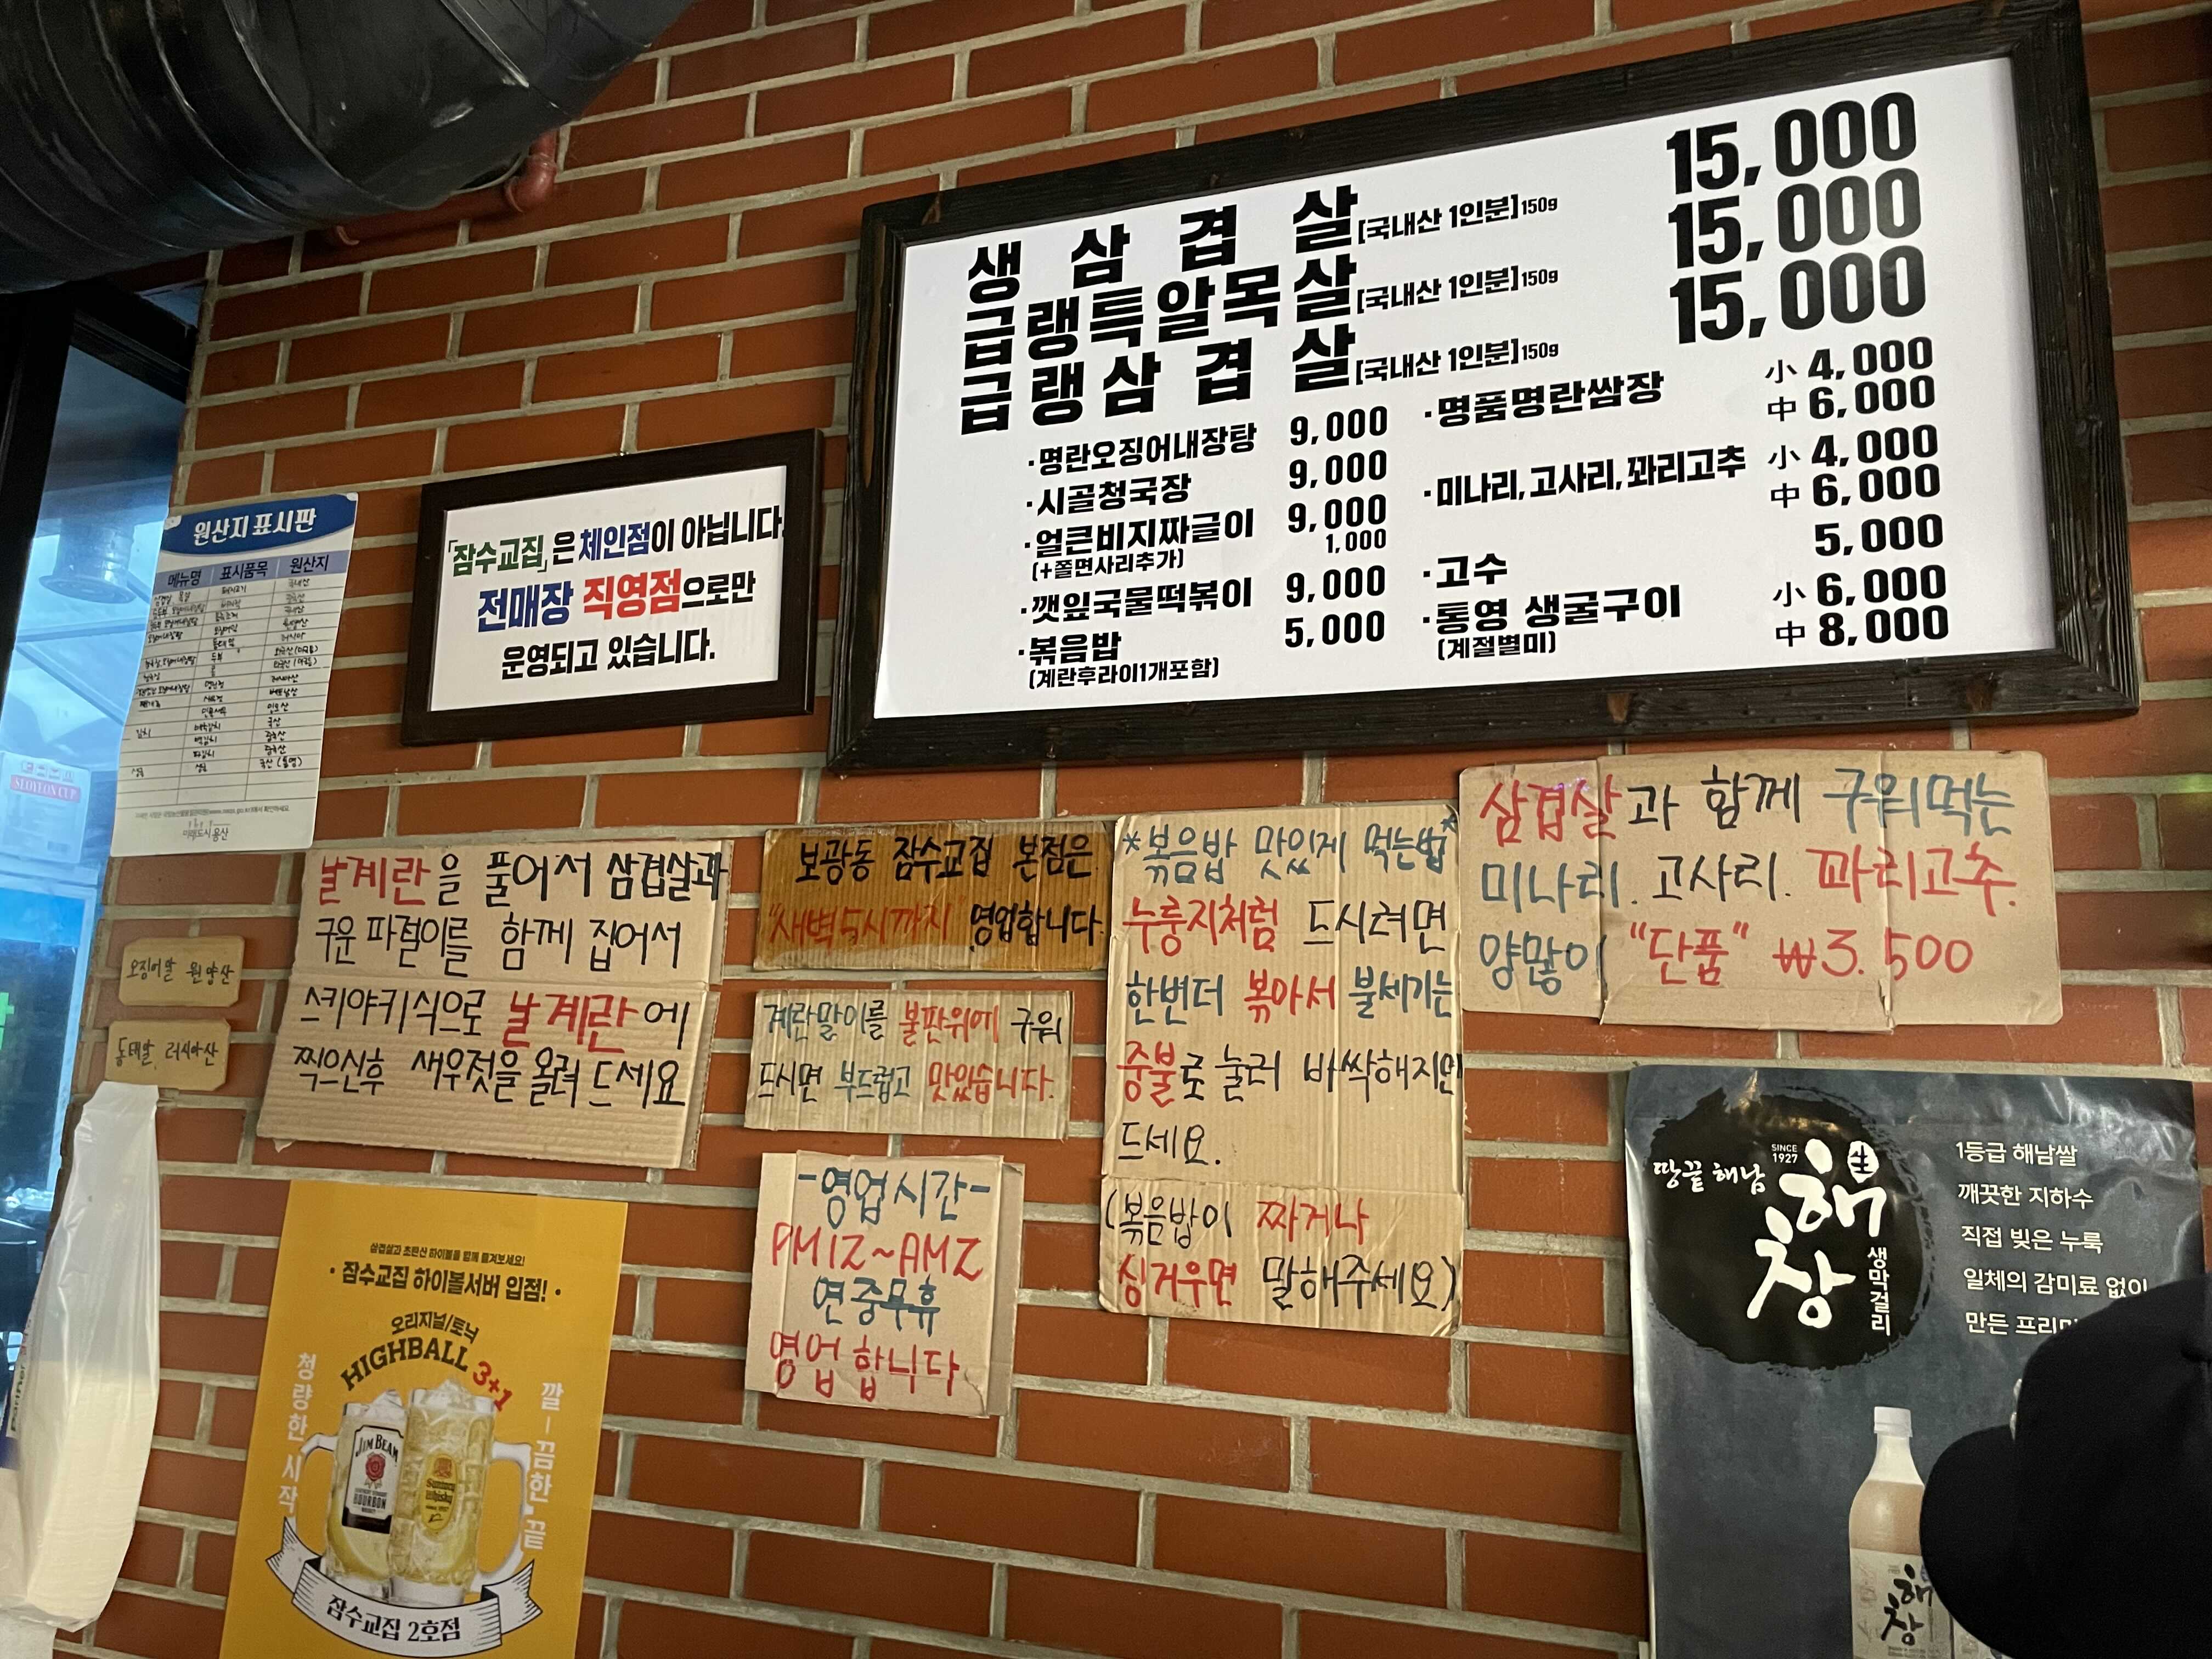 생 삼 겹 살 [국내산 1인분] 150g 15,000
급랭특알목살 [국내산 1인분] 150g 15,000
급랭삼 겹 살 [국내산 1인분] 150g 15,000
·명란오징어내장탕 9,000
·시골청국장 9,000
·얼큰비지짜글이 9,000
(+쫄면사리추가) 1,000
·깻잎국물떡볶이 9,000
·볶음밥 5,000
(계란후라이1개포함)
·명품명란쌈장 小 4,000
中 6,000
·미나리, 고사리, 꽈리고추 小 4,000
中 6,000
·고수 5,000
·통영 생굴구이 小 6,000
(계절별미) 中 8,000
「잠수교집」은 체인점이 아닙니다.
전매장 직영점으로만
운영되고 있습니다.
원산지 표시판
메뉴명 표시품목 원산지
미래도시 용산
SEOYEON CUP
오징어알 원양산
동태알. 러시아산
날계란을 풀어서 삼겹살과
구운 파절이를 함께 집어서
스키야키식으로 날계란에
찍으신후 새우젓을 올려 드세요
보광동 잠수교집 본점은
"새벽5시까지 영업합니다.
계란말이를 불판위에 구워
드시면 부드럽고 맛있습니다.
-영업시간-
PM12~AM2
연중무휴
영업합니다
*볶음밥 맛있게 먹는법*
누룽지처럼 드시려면
한번더 볶아서 불세기는
중불로 눌러 바싹해지면
드세요.
(볶음밥이 짜거나
싱거우면 말해주세요)
삼겹살과 함께 구워먹는
미나리. 고사리. 꽈리고추.
양많이 "단품" ₩3.500
삼겹살과 초탄산 하이볼을 함께 즐겨보세요!
·잠수교집 하이볼서버 입점!·
오리지널/토닉
HIGHBALL 3+1
청량한 시작
깔-끔한 끝
JIM BEAM
BOURBON
잠수교집 2호점
땅끝 해남
SINCE
1927
해창
生
생막걸리
1등급 해남쌀
깨끗한 지하수
직접 빚은 누룩
일체의 감미료 없이
만든
해창